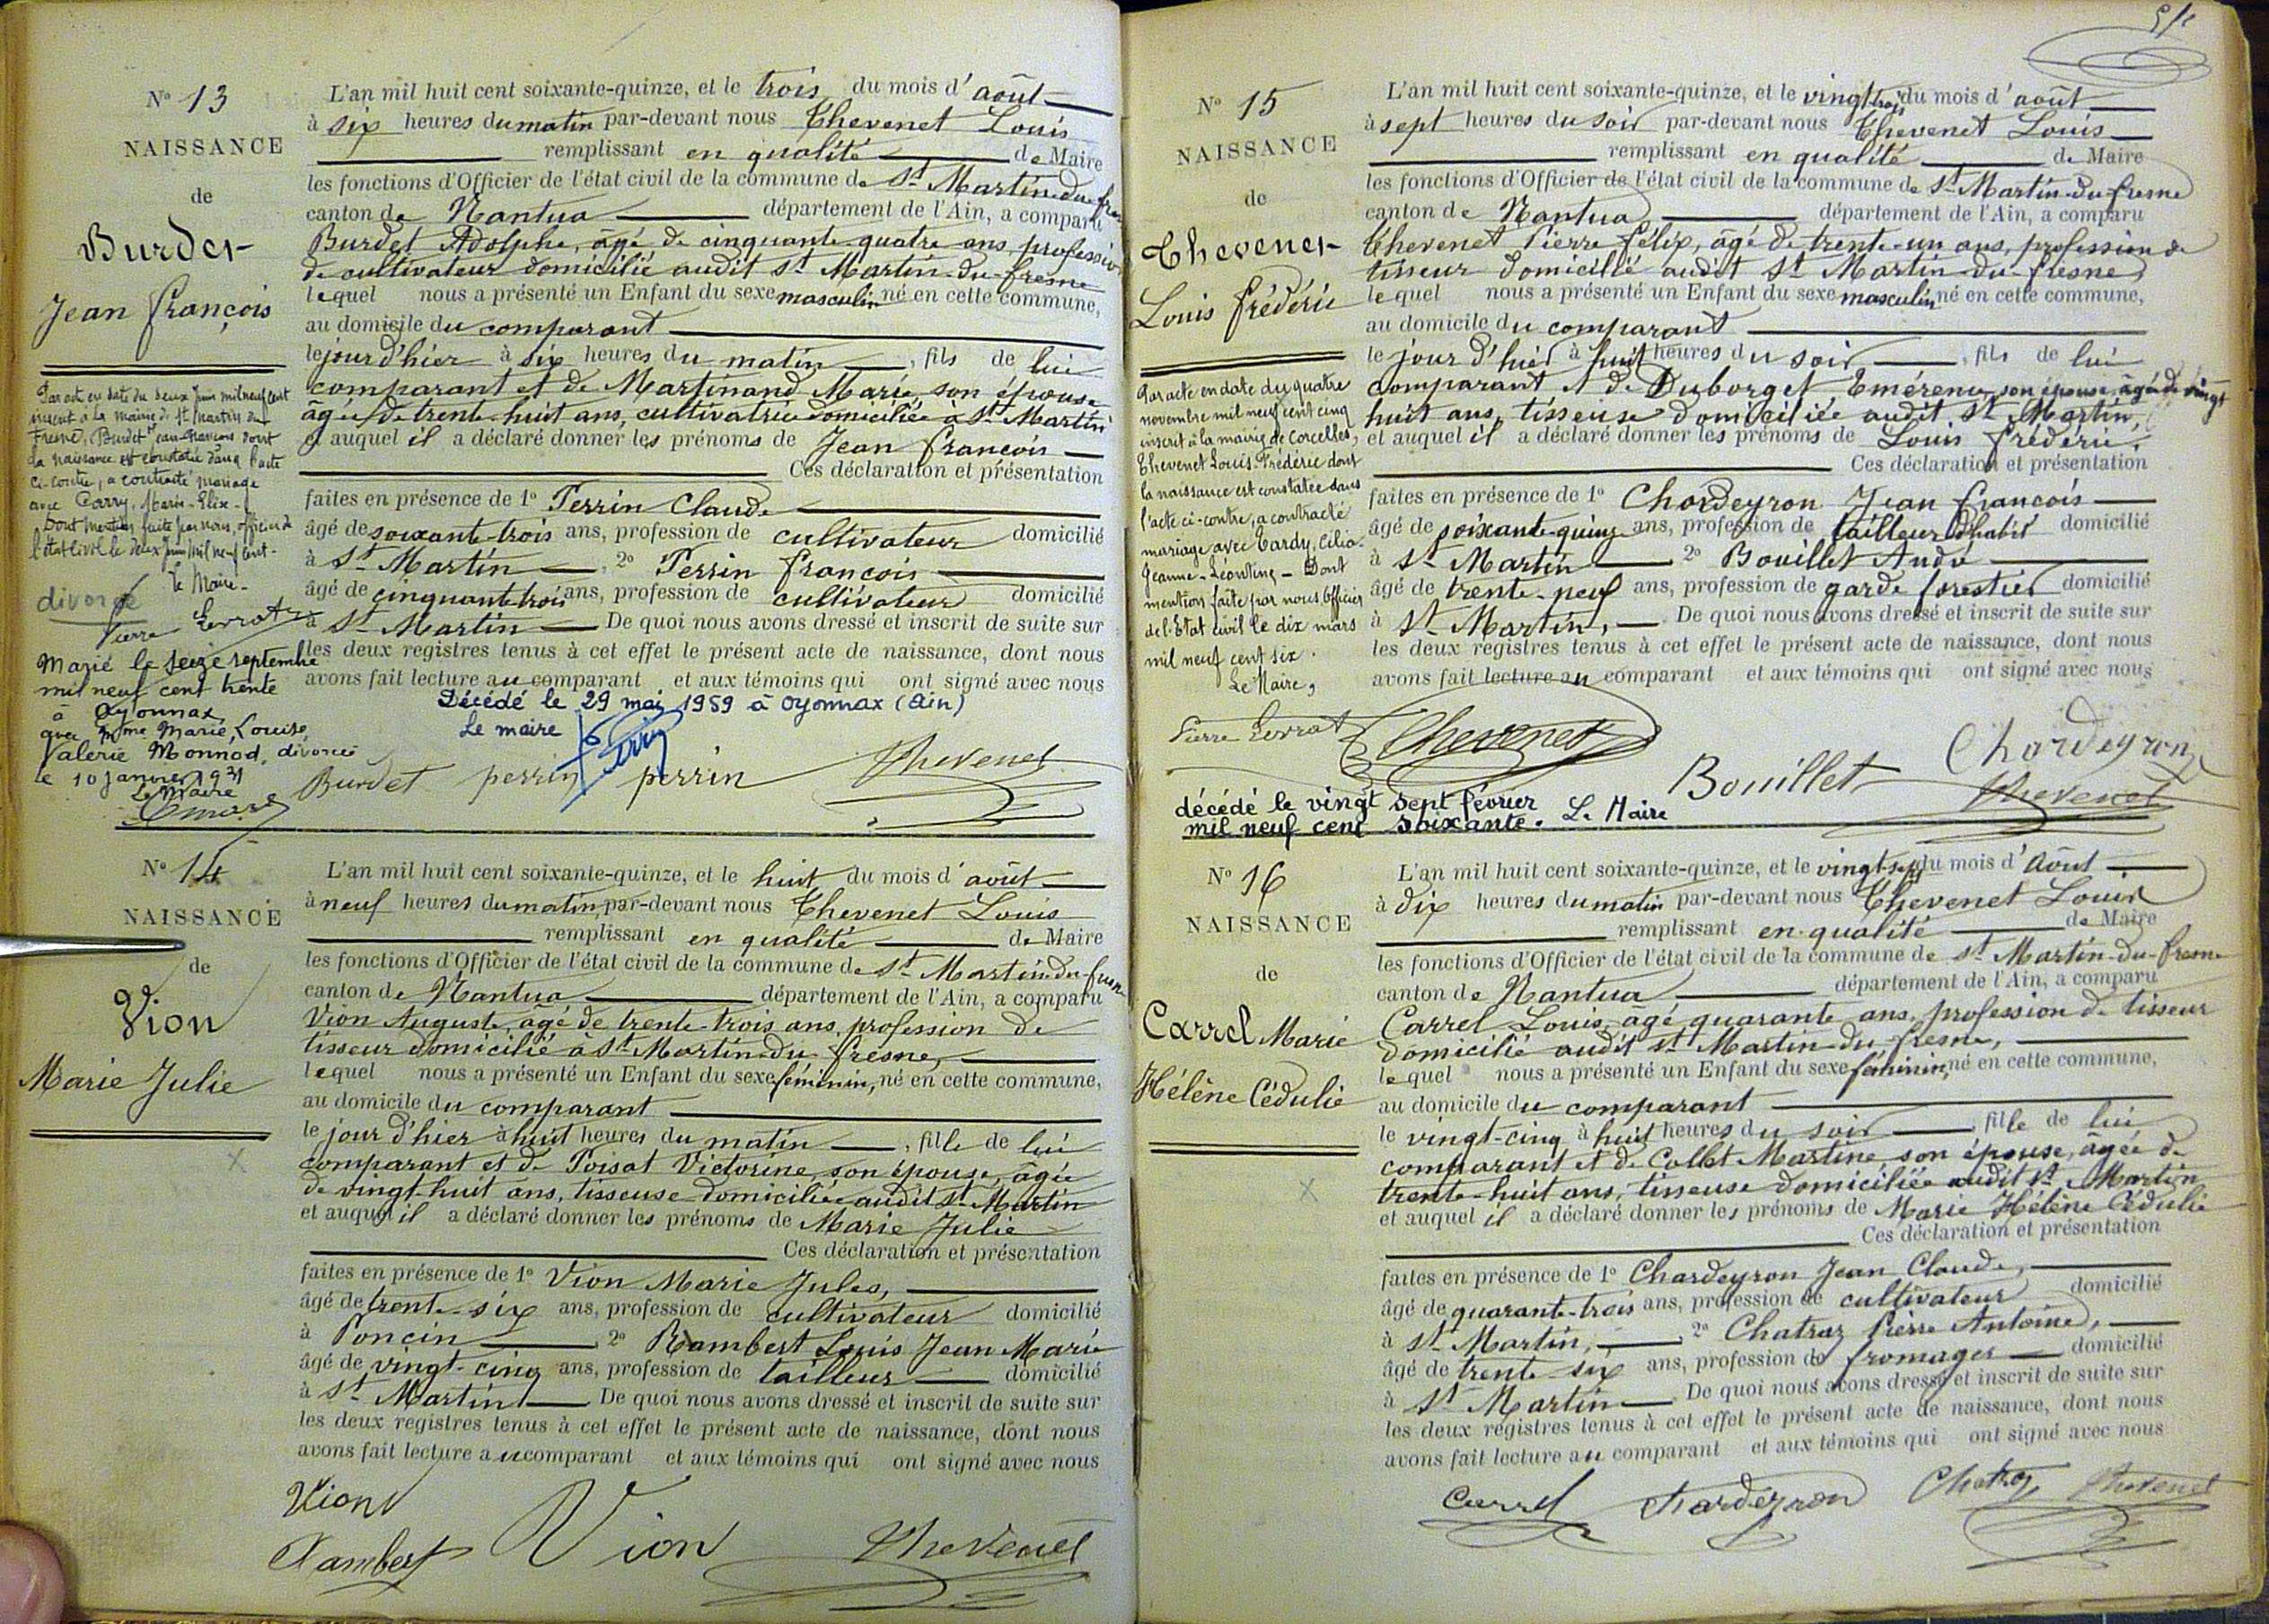 N° 13
NAISSANCE
de
Burdet
Jean François
Par acte en date du deux Juin mil neuf cent
inscrit à la mairie de St Martin du
Fresne, Burdet Jean François dont
la naissance est constatée dans l'acte
ci-contre, a contracté mariage
avec Carry, Marie-Elix-
Dont mention faite par nous, officier de
l'état civil le deux Juin mil neuf cent-
Le Maire-
divorcé
Pierre Gerrat
Marié le seize septembre
mil neuf cent trente
à Oyonnax
avec Mme Marie, Louise,
Valérie Monnod, divorcée
le 10 janvier 1931
Le Maire
L'an mil huit cent soixante-quinze, et le trois du mois d'août
à six heures du matin par-devant nous Thevenet Louis
remplissant en qualité de Maire
les fonctions d'Officier de l'état civil de la commune de St Martin-du-fresne
canton de Nantua département de l'Ain, a comparu
Burdet Adolphe, âgé de cinquante-quatre ans, profession
de cultivateur domicilié audit St Martin-du-fresne
lequel nous a présenté un Enfant du sexe masculin né en cette commune,
au domicile du comparant
le jour d'hier à six heures du matin, fils de lui
comparant et de Martinand Marie, son épouse
âgée de trente-huit ans, cultivatrice domiciliée à St Martin
et auquel il a déclaré donner les prénoms de Jean François
Ces déclaration et présentation
faites en présence de 1° Perrin Claude
âgé de soixante-trois ans, profession de cultivateur domicilié
à St Martin, 2° Perrin François
âgé de cinquante-trois ans, profession de cultivateur domicilié
à St Martin De quoi nous avons dressé et inscrit de suite sur
les deux registres tenus à cet effet le présent acte de naissance, dont nous
avons fait lecture au comparant et aux témoins qui ont signé avec nous
Décédé le 29 mai 1959 à Oyonnax (Ain)
Le maire
Burdet perrin perrin Thevenet
N° 14
NAISSANCE
de
Vion
Marie Julie
X
L'an mil huit cent soixante-quinze, et le huit du mois d'août
à neuf heures du matin, par-devant nous Thevenet Louis
remplissant en qualité de Maire
les fonctions d'Officier de l'état civil de la commune de St Martin-du-fresne
canton de Nantua département de l'Ain, a comparu
Vion Auguste, âgé de trente-trois ans, profession de
tisseur domicilié à St Martin-du-fresne,
lequel nous a présenté un Enfant du sexe féminin, né en cette commune,
au domicile du comparant
le jour d'hier à huit heures du matin, fille de lui
comparant et de Poisat Victorine, son épouse, âgée
de vingt-huit ans, tisseuse domiciliée audit St Martin
et auquel il a déclaré donner les prénoms de Marie Julie
Ces déclaration et présentation
faites en présence de 1° Vion Marie Jules,
âgé de trente-six ans, profession de cultivateur domicilié
à Poncin 2° Rambert Louis Jean Marie
âgé de vingt-cinq ans, profession de tailleur domicilié
à St Martin De quoi nous avons dressé et inscrit de suite sur
les deux registres tenus à cet effet le présent acte de naissance, dont nous
avons fait lecture au comparant et aux témoins qui ont signé avec nous
Vion
Rambert Vion Thevenet
N° 15
NAISSANCE
de
Thevenet
Louis frédéric
Par acte en date du quatre
novembre mil neuf cent cinq
inscrit à la mairie de Corcelles,
Thevenet Louis-Frédéric dont
la naissance est constatée dans
l'acte ci-contre, a contracté
mariage avec Tardy, Célia-
Jeanne-Léontine - Dont
mention faite par nous Officier
de l'Etat civil le dix mars
mil neuf cent six.
Le Maire,
Pierre Gerrat
L'an mil huit cent soixante-quinze, et le vingt-trois du mois d'août
à sept heures du soir par-devant nous Thevenet Louis
remplissant en qualité de Maire
les fonctions d'Officier de l'état civil de la commune de St Martin-du-fresne
canton de Nantua département de l'Ain, a comparu
Thevenet Pierre félix, âgé de trente-un ans, profession de
tisseur domicilié audit St Martin-du-fresne
lequel nous a présenté un Enfant du sexe masculin né en cette commune,
au domicile du comparant
le jour d'hier à huit heures du soir, fils de lui
comparant et de Duborget Emérence, son épouse, âgée de vingt
huit ans, tisseuse domiciliée audit St Martin,
et auquel il a déclaré donner les prénoms de Louis frédéric.
Ces déclaration et présentation
faites en présence de 1° Chardeyron Jean François
âgé de soixante-quinze ans, profession de tailleur d'habit domicilié
à St Martin 2° Bouillet André
âgé de trente-neuf ans, profession de garde forestier domicilié
à St Martin, De quoi nous avons dressé et inscrit de suite sur
les deux registres tenus à cet effet le présent acte de naissance, dont nous
avons fait lecture au comparant et aux témoins qui ont signé avec nous
Thevenet Bouillet Chardeyron
Thevenet
décédé le vingt sept février
mil neuf cent soixante. Le Maire
N° 16
NAISSANCE
de
Carrel Marie
Hélène Cédulie
X
L'an mil huit cent soixante-quinze, et le vingt-sept du mois d'Août
à dix heures du matin par-devant nous Thevenet Louis
remplissant en qualité de Maire
les fonctions d'Officier de l'état civil de la commune de St Martin-du-fresne
canton de Nantua département de l'Ain, a comparu
Carrel Louis, âgé quarante ans, profession de tisseur
domicilié audit St Martin-du-fresne,
lequel nous a présenté un Enfant du sexe féminin, né en cette commune,
au domicile du comparant
le vingt-cinq à huit heures du soir, fille de lui
comparant et de Collet Martine son épouse, âgée de
trente-huit ans, tisseuse domiciliée audit St Martin
et auquel il a déclaré donner les prénoms de Marie Hélène Cédulie
Ces déclaration et présentation
faites en présence de 1° Chardeyron Jean Claude,
âgé de quarante-trois ans, profession de cultivateur domicilié
à St Martin, 2° Chatraz Pierre Antoine,
âgé de trente-six ans, profession de fromager domicilié
à St Martin De quoi nous avons dressé et inscrit de suite sur
les deux registres tenus à cet effet le présent acte de naissance, dont nous
avons fait lecture au comparant et aux témoins qui ont signé avec nous
Carrel Chardeyron Chatraz Thevenet